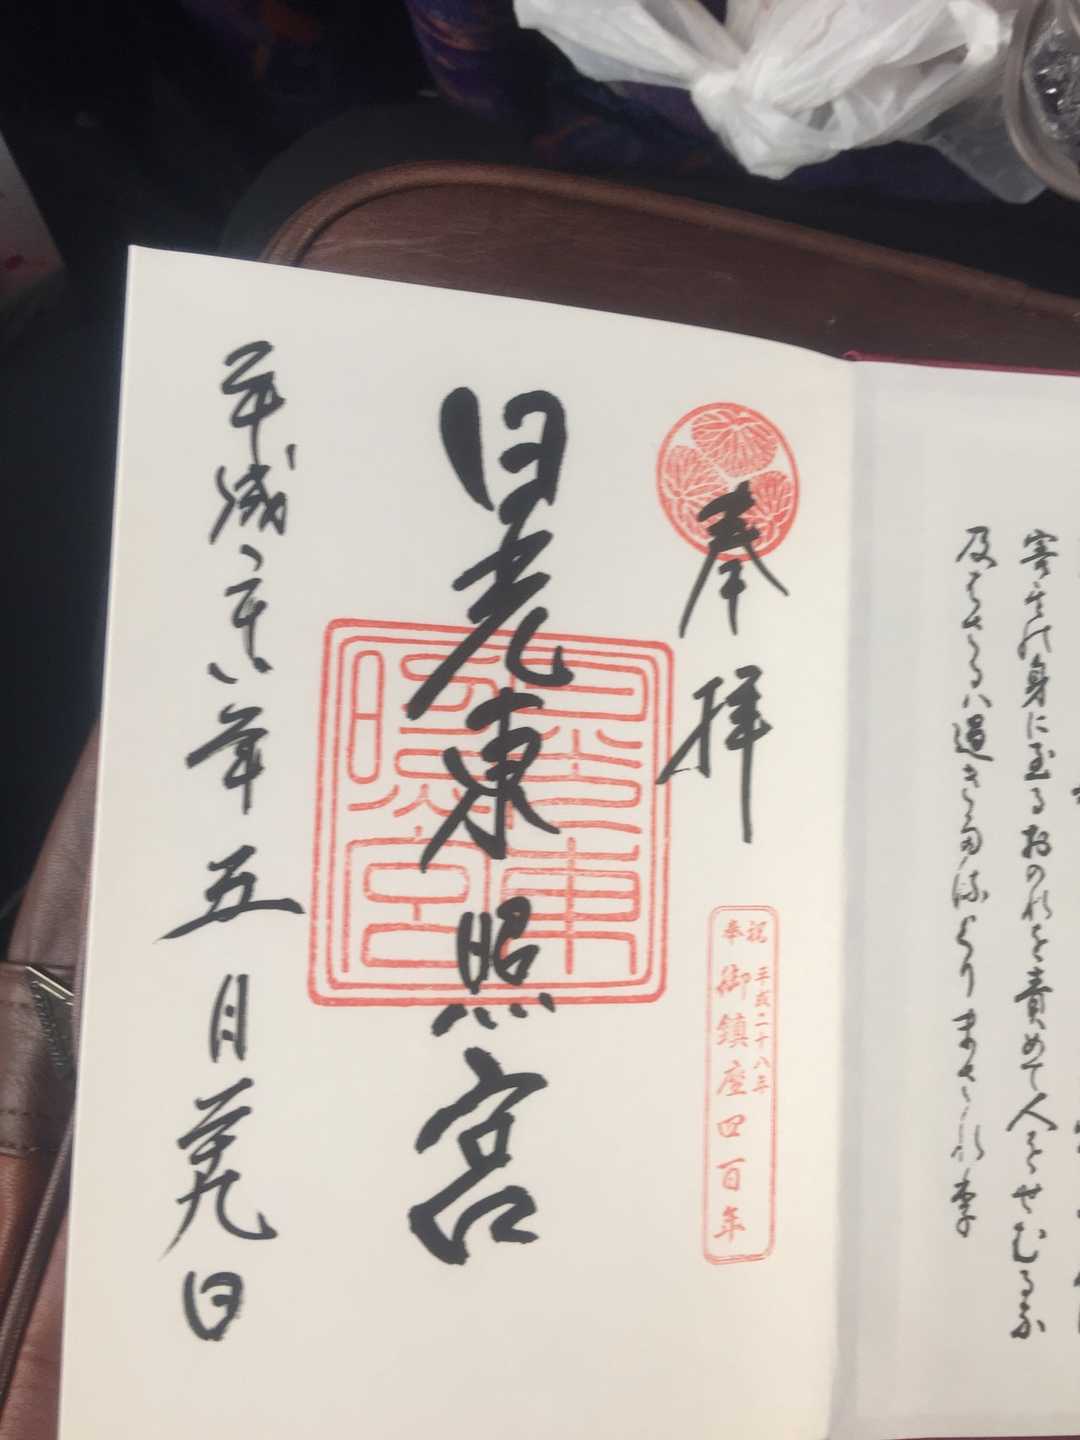 害其身に至るおのれを責めて人をせむるな
及はさるハ過きたるよりまされり
奉拝
奉祝
平成二十八年
御鎮座四百年
日光東照宮
日光東照宮
平成二十八年五月二十九日